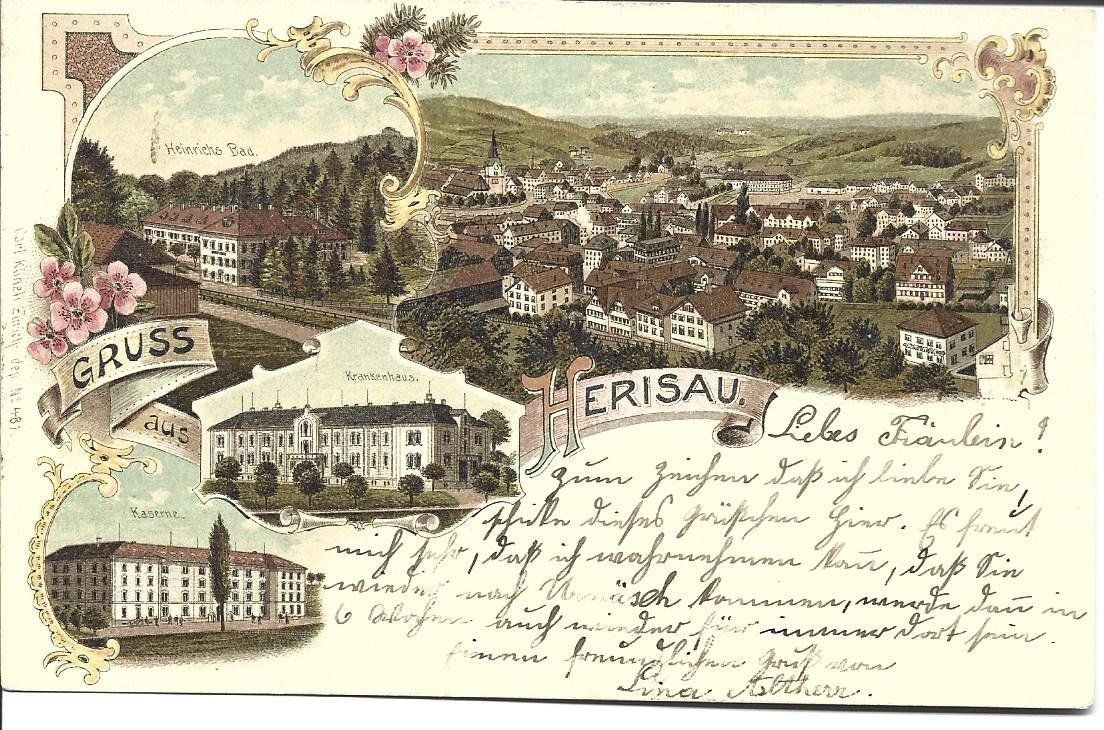 Heinrichs Bad.
GRUSS
aus
HERISAU.
Krankenhaus.
Kaserne.
Carl Künzli Zürich dep. No 481.
Lebes Fräulein!
Zum Zeichen daß ich liebe Sie,
schike dieses Grüßchen hier. Es freut
mich sehr, daß ich wahrnehmen kan̄, daß Sie
wieder nach Urnäsch kommen, werde dan̄ in
6 Wochen auch wieder für immer dort sein.
Einen freundlichen Gruß von
Lina Altherr.